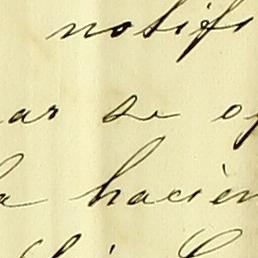 notifi
ar se o
a hacien